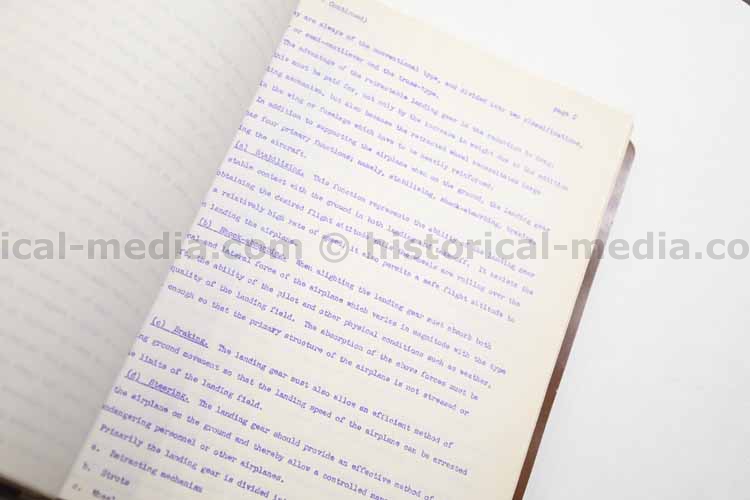 Continued)
page 2
ay are always of the conventional type, and divided into two classifications,
or semi-cantilever and the truss-type.
The advantage of the retractable landing gear is the reduction in drag.
this must be paid for, not only by the increase in weight due to the addition
ting mechanism, but also because the retracted wheel necessitates large
in the wing or fuselage which have to be heavily reinforced.
In addition to supporting the airplane when on the ground, the landing gear
has four primary functions; namely, stabilizing, shock-absorbing, braking,
ing the aircraft.
(a) Stabilizing. This function represents the ability of the landing gear
stable contact with the ground in both landing and takeoff. It assists the
obtaining the desired flight attitude when the wheels are rolling over the
a relatively high rate of speed; it also permits a safe flight attitude to
n landing the airplane.
ical-media.com © historical-media.com © historical-media.com
(b) Shock-absorbing. When alighting the landing gear must absorb both
and lateral force of the airplane which varies in magnitude with the type
the ability of the pilot and other physical conditions such as weather,
quality of the landing field. The absorption of the above forces must be
enough so that the primary structure of the airplane is not stressed or
(c) Braking. The landing gear must also allow an efficient method of
ng ground movement so that the landing speed of the airplane can be arrested
e limits of the landing field.
(d) Steering. The landing gear should provide an effective method of
the airplane on the ground and thereby allow a controlled
endangering personnel or other airplanes.
Primarily the landing gear is divided
a. Retracting mechanism
b. Struts
c.